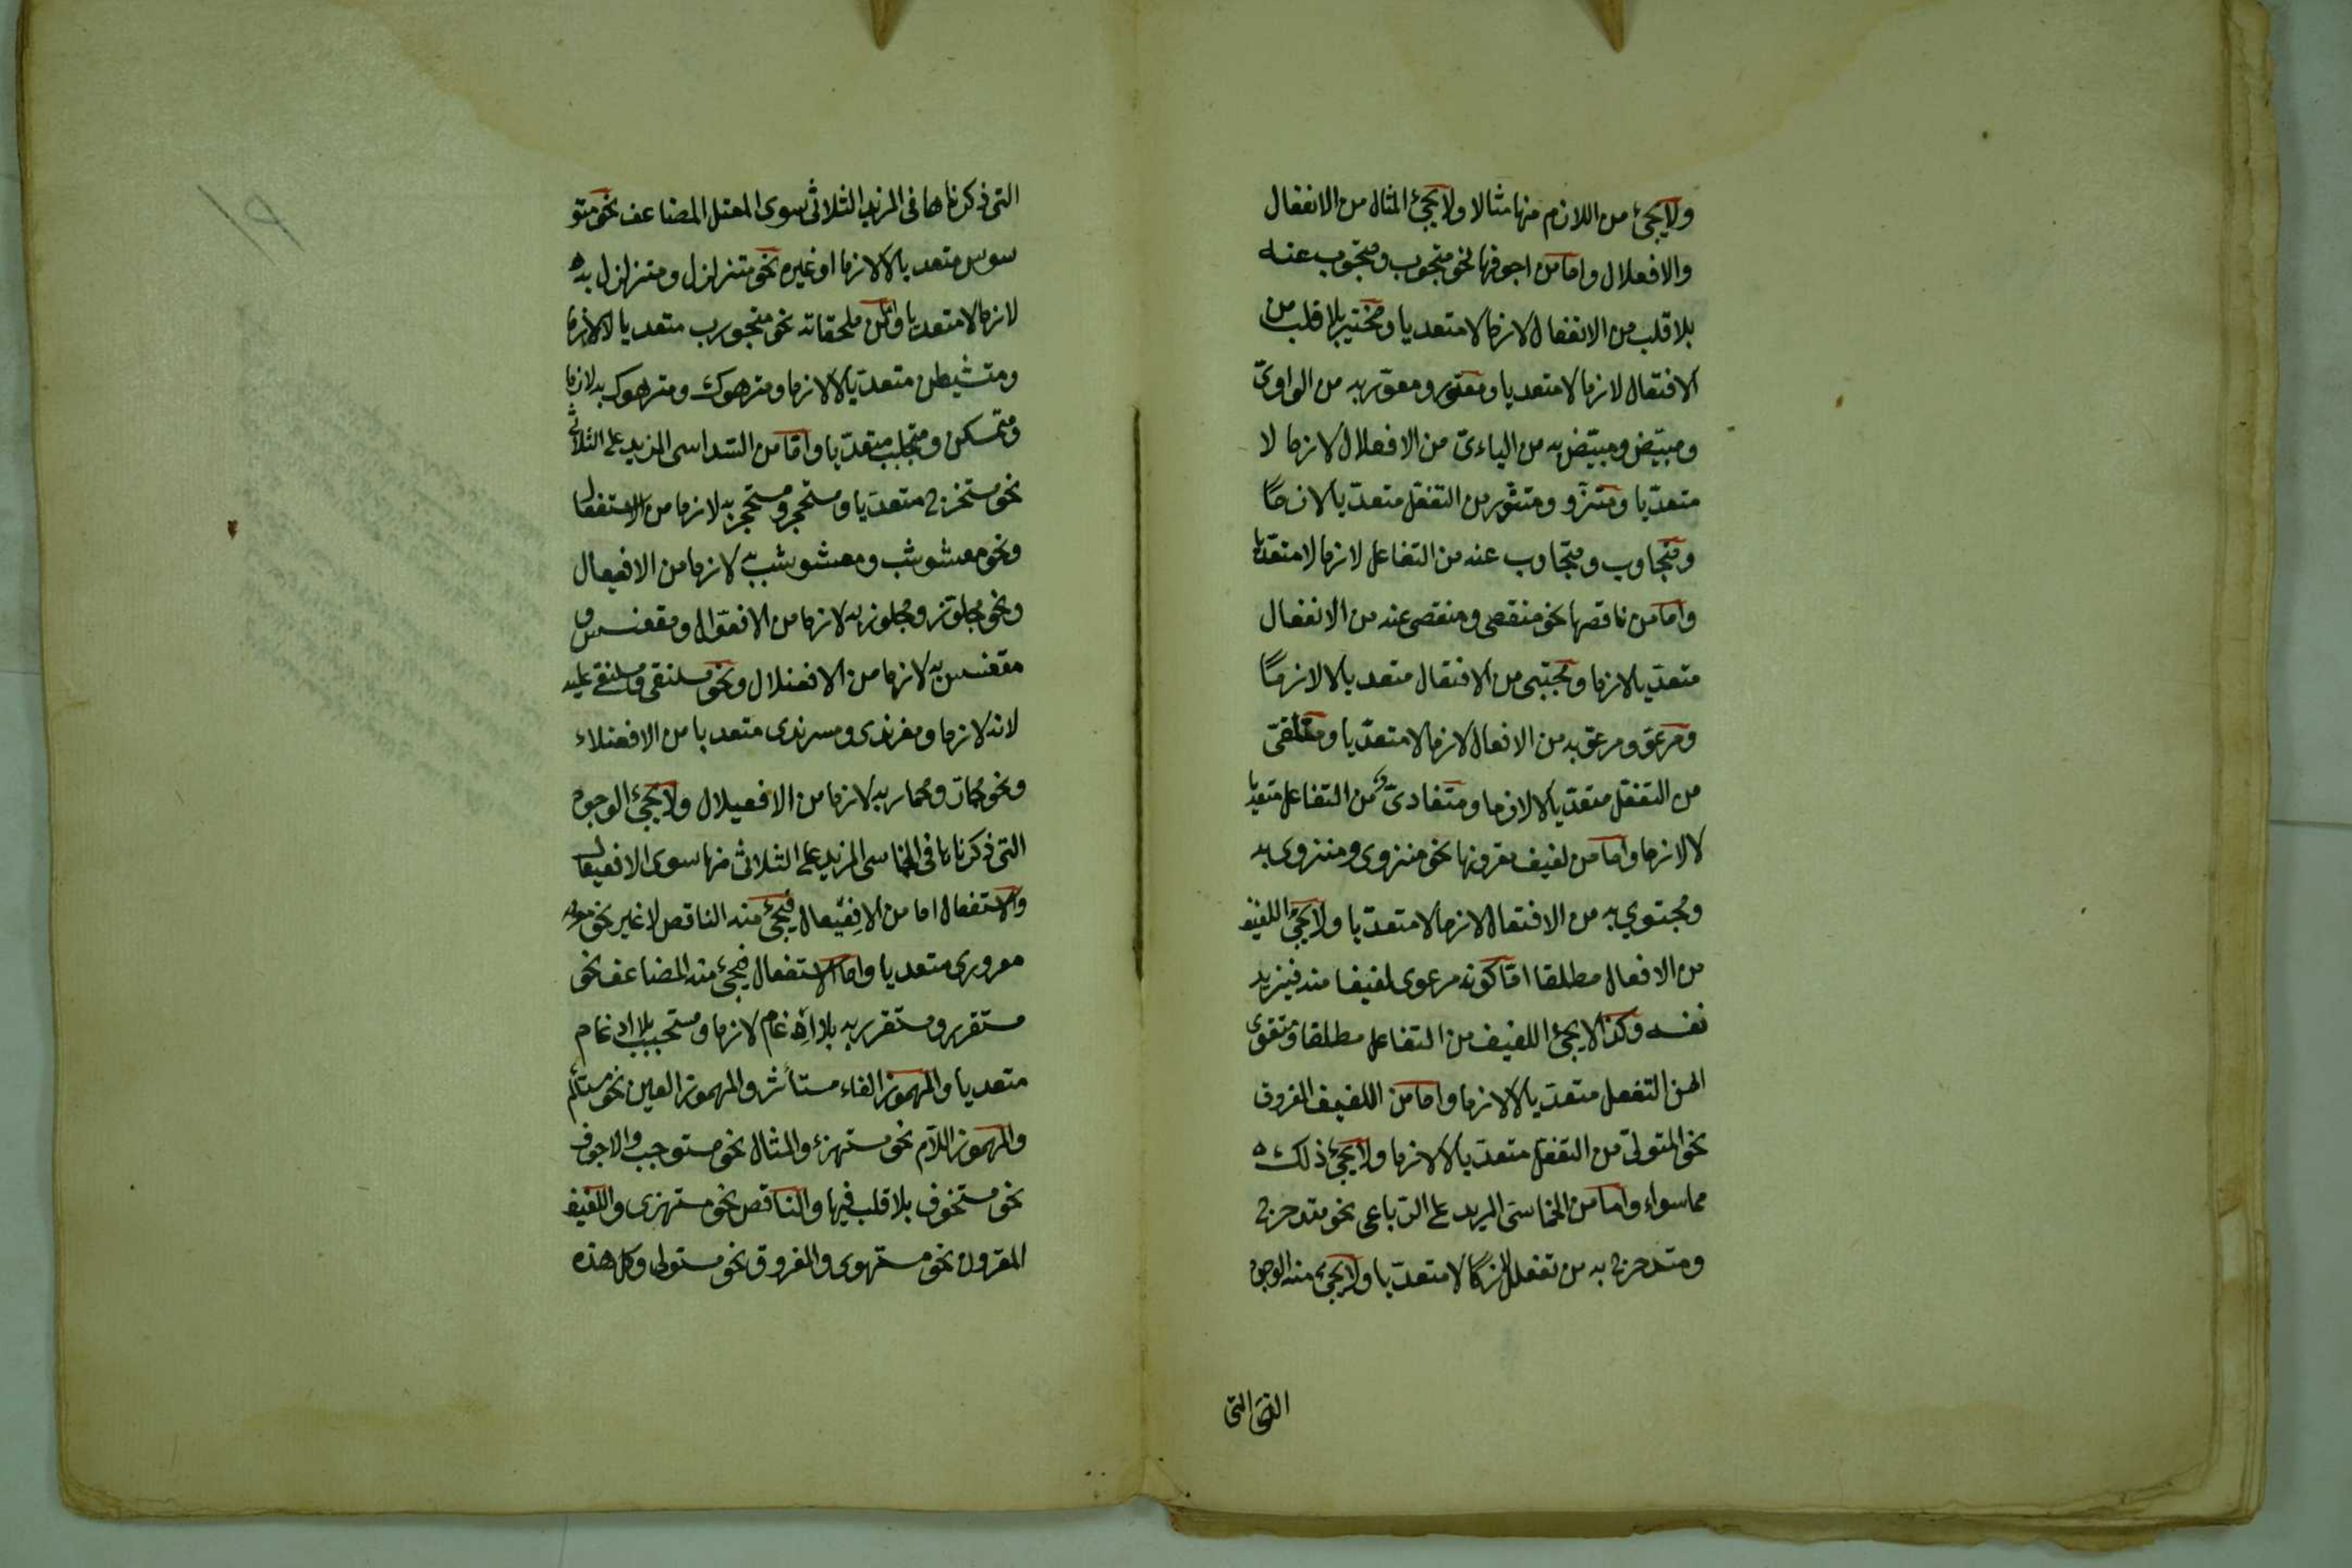 ولا يجئ من اللازم منها مثالا ولا يجئ المثال من الانفعال
والافعلال واما من اجوفها نحو منجوب ومنجوب عنه
بلا قلب من الانفعال لازما لا متعديا ومختير بلا قلب من
الافتعال لازما لا متعديا ومعوّر ومعوّر به من الواوىّ
ومبيّض ومبيّض به من الياءىّ من الافعلال لازما لا
متعدّيا ومتزوّد من التفعّل متعدّيا لا لازمًا
ومتجاوب ومتجاوب عنه من التفاعل لازما لا متعدّيا
واما من ناقصها نحو منقصى ومنقصى عنه من الانفعال
متعدّيا لازما ومجتبى من الافتعال متعديا لا لازمًا
ومرعوّ ومرعوّ به من الافعال لازما لا متعدّيا ومتلقىّ
من التفعّل متعدّيا لا لازما ومتفادىّ من التفاعل متعديا
لا لازما واما من لفيف مقرونها نحو منزوى ومنزوى به
ومجتوي به من الافتعال لازما لا متعدّيا ولا يجئ اللفيف
من الافعال مطلقا امّا كونه مرعوى لفيفا منه فيزيد
نفسه وكذا لا يجئ اللفيف من التفاعل مطلقا ومتقوى
من التفعل متعدّيا لا لازما واما من اللفيف المفروق
نحو المتولىّ من التفعّل متعدّيا لا لازما ولا يجئ ذلك
مما سواه واما من الخماسىّ المزيد على الرّباعى نحو متدحرج
ومتدحرج به من تفعلل لازمًا لا متعدّيا ولا يجئ منه الوجوه
التى
التى ذكرناها فى المزيد الثلاثى سوى المعتل المضاعف نحو متو
سوس متعديا لا لازما او غيره نحو متزلزل ومتزلزل به
لازما لا متعديا واما من ملحقاته نحو متجورب متعديا لا لازما
ومتشيطن متعدّيا لا لازما ومترهوك ومترهوك به لازما
ومتمسكن ومتجلبب متعدّيا وامّا من السّداسى المزيد على الثلاثى
نحو مستخرج متعدّيا ومستحجر ومستحجر به لازما من الاستفعال
ونحو معشوشب ومعشوشب به لازما من الافعيعال
ونحو مجلوّز ومجلوّز به لازما من الافعوّال ومقعنسس و
مقعنسس به لازما من الافعنلال ونحو مسلنقى ومسلنقى عليه
لانه لازما ومغرندى ومسرندى متعديا من الافعنلاء
ونحو محمارّ ومحمارّ به لازما من الافعيلال ولا يجئ الوجوه
التى ذكرناها فى الخماسى المزيد على الثلاثى منها سوى الافعيعال
والاستفعال اما من الافعيعال فيجئ منه الناقص لا غير نحو
معرورى متعديا واما الاستفعال فيجئ منه المضاعف نحو
مستقرر ومستقرر به بلا ادغام لازما ومستحبب بلا ادغام
متعديا والمهموز الفاء مستأثر والمهموز العين نحو مستلئم
والمهموز اللام نحو مستهزئ والمثال نحو مستوجب والاجوف
نحو مستخوف بلا قلب فيها والناقص نحو مستهزى واللفيف
المقرون نحو مستهوى والمفروق نحو مستولى وكل هذه